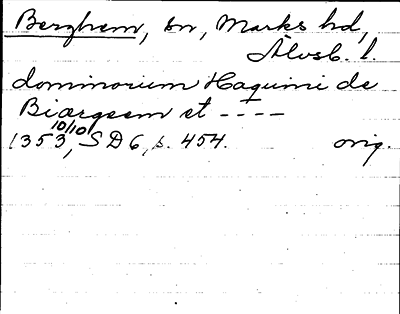 Berghem, sn, Marks hd,
Älvsb. l.
dominorium Haquini de
Biærgeem et ----
10/10
1353, SD6, s. 454. orig.